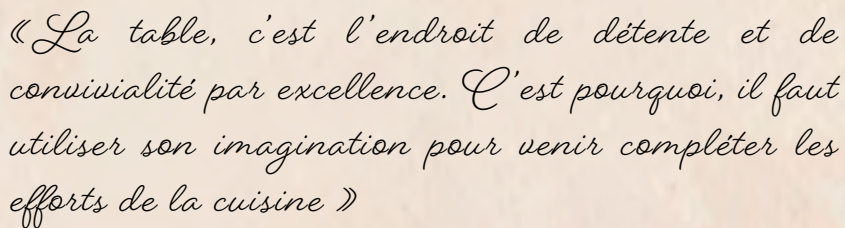 « La table, c'est l'endroit de détente et de
convivialité par excellence. C'est pourquoi, il faut
utiliser son imagination pour venir compléter les
efforts de la cuisine »